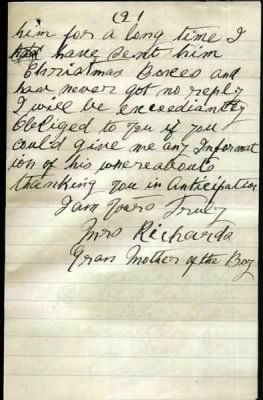 (2)
him for a long time I
have sent him
Christmas Boxes and
had never got no reply
I will be exceediantly
Obliged to you if you
could give me any Informat
ion of his whereabouts
thanking you in Anticipation
I am Yours Truly
Mrs Richards
Gran Mother of the Boy